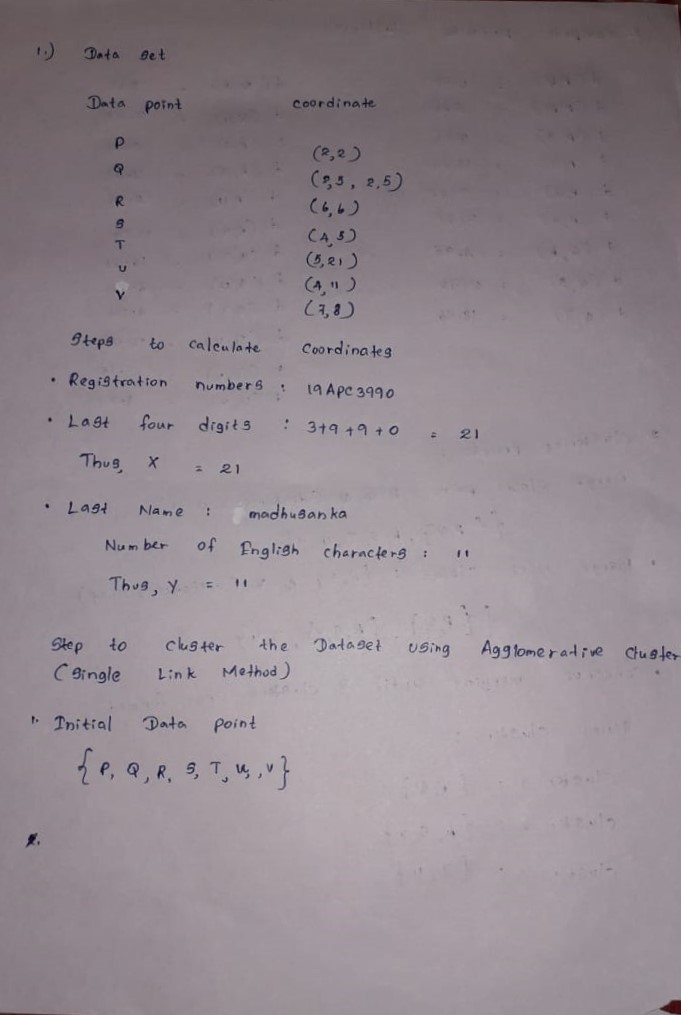 1.) Data set
Data point coordinate
P
(2,2)
Q
(2,5, 2,5)
R
(6,6)
S
(4,5)
T
(5,21)
U
(4,11)
V
(7,8)
Steps to calculate coordinates
• Registration numbers : 19APC3990
• Last four digits : 3+9+9+0 = 21
Thus, X = 21
• Last Name : madhusanka
Number of English characters : 11
Thus, Y = 11
Step to cluster the Dataset using Agglomerative cluster
(Single Link Method)
1. Initial Data point
{P, Q, R, S, T, U, V}